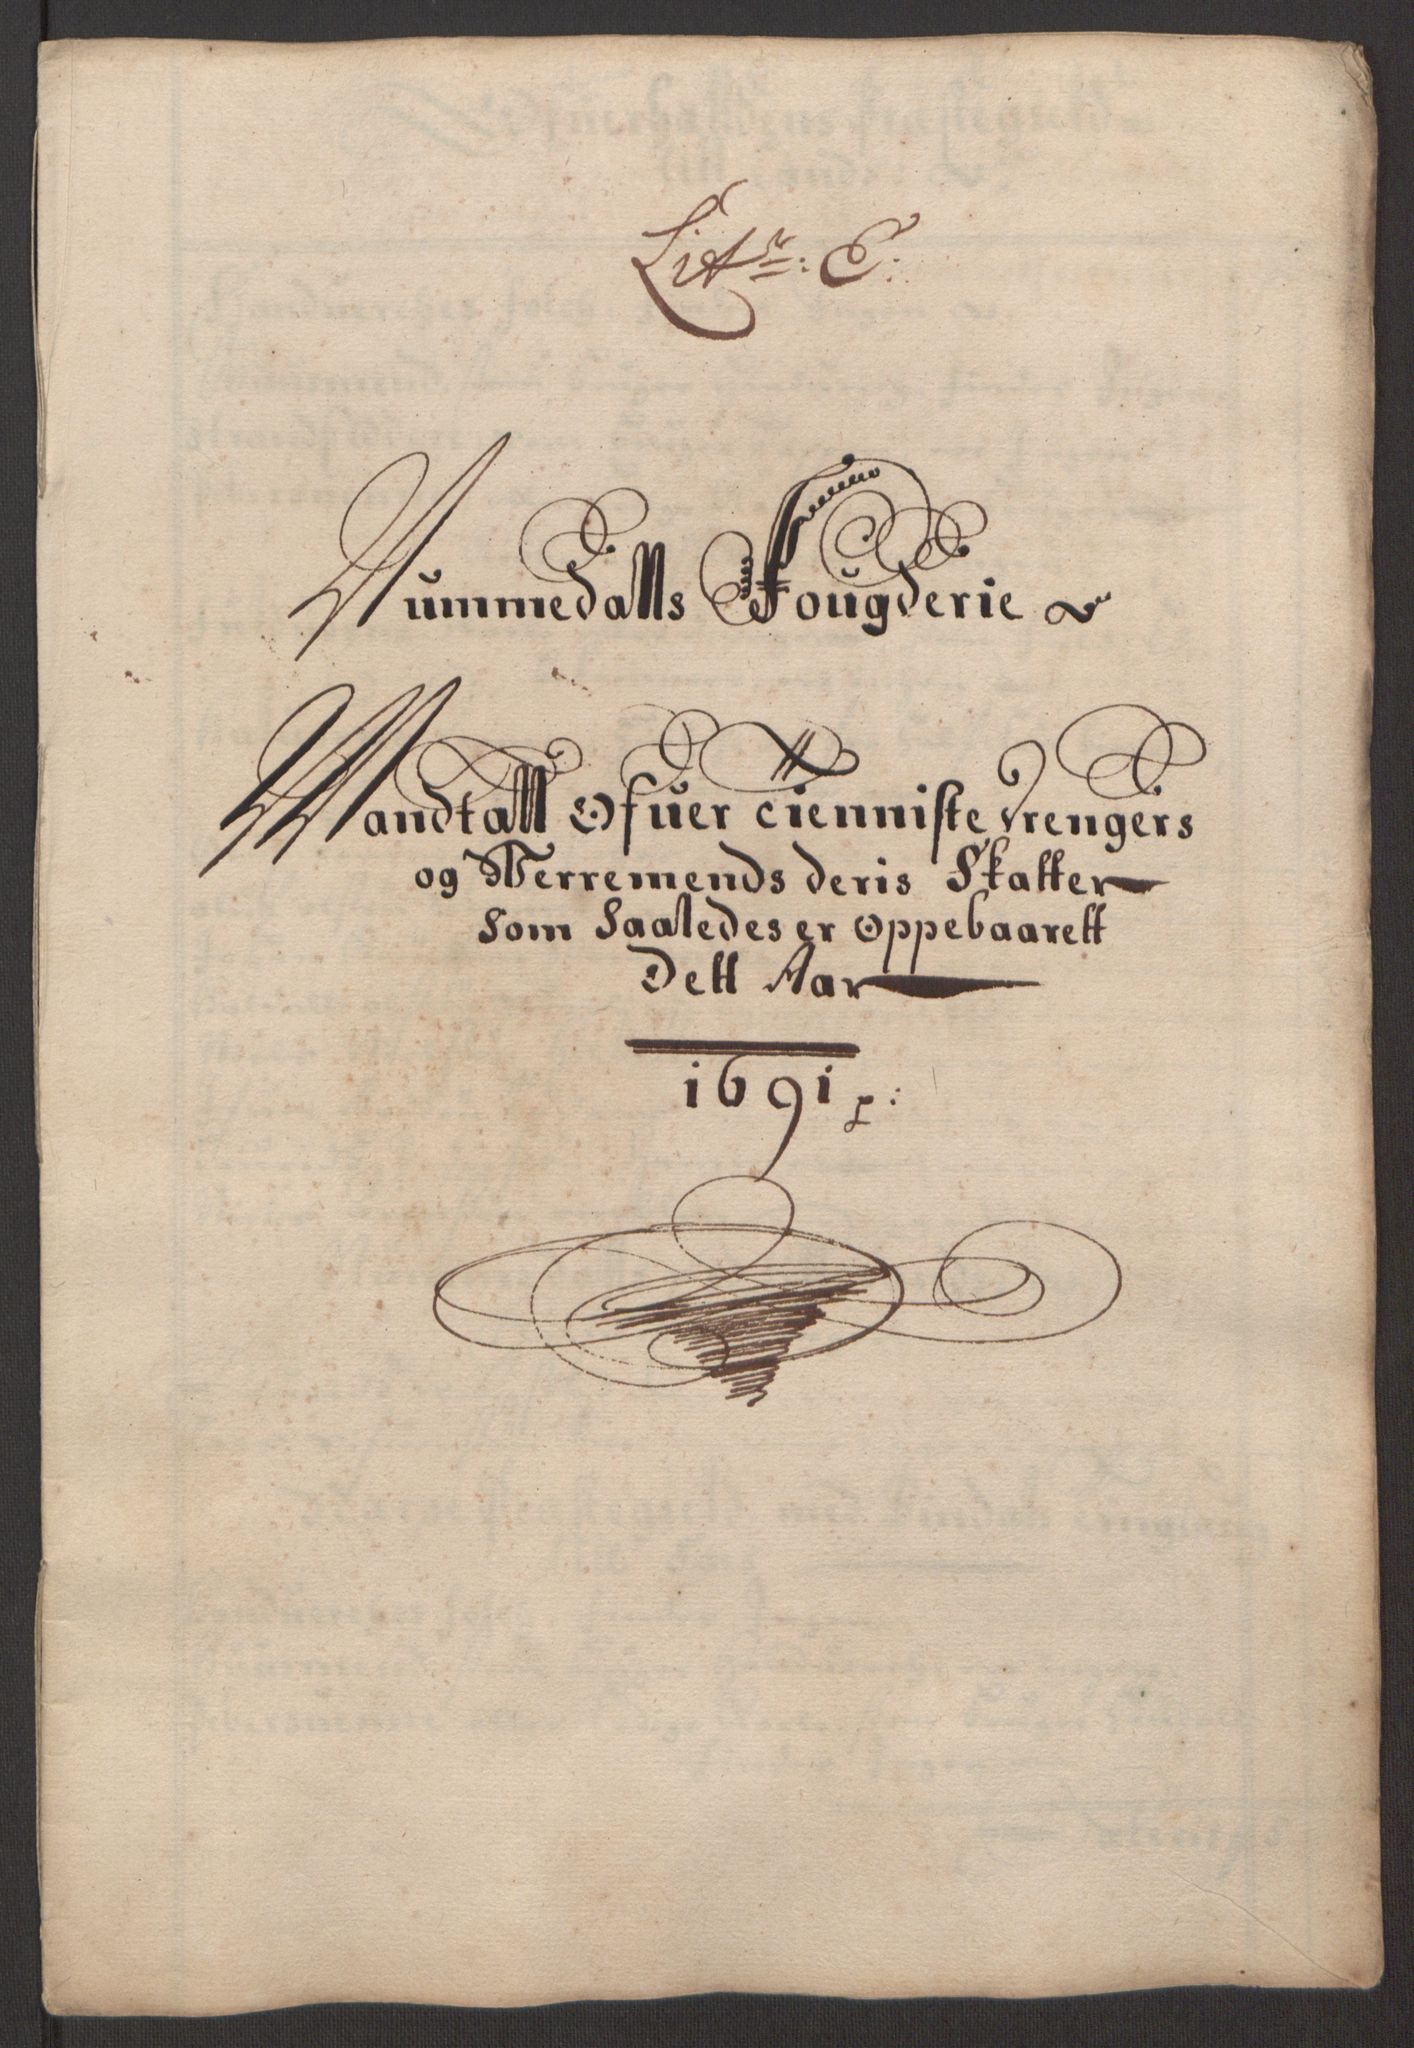 Litr: E:
Nummedalls Fougderie
Mandtall Ofuer tienniste drengers
og Werremends deris Skatter
Som Saaledes er Oppebaarett
Dett Aar
1691